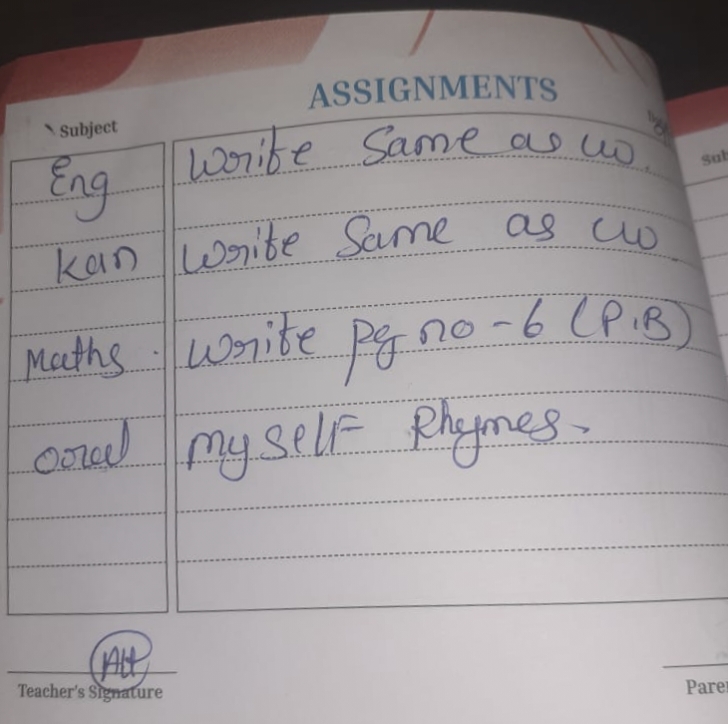 ASSIGNMENTS
Subject
Eng Write Same as cw.
Kan Write Same as cw
Maths. Write pg no-6 (P.B)
ooral myself Rhymes.
Teacher's Signature